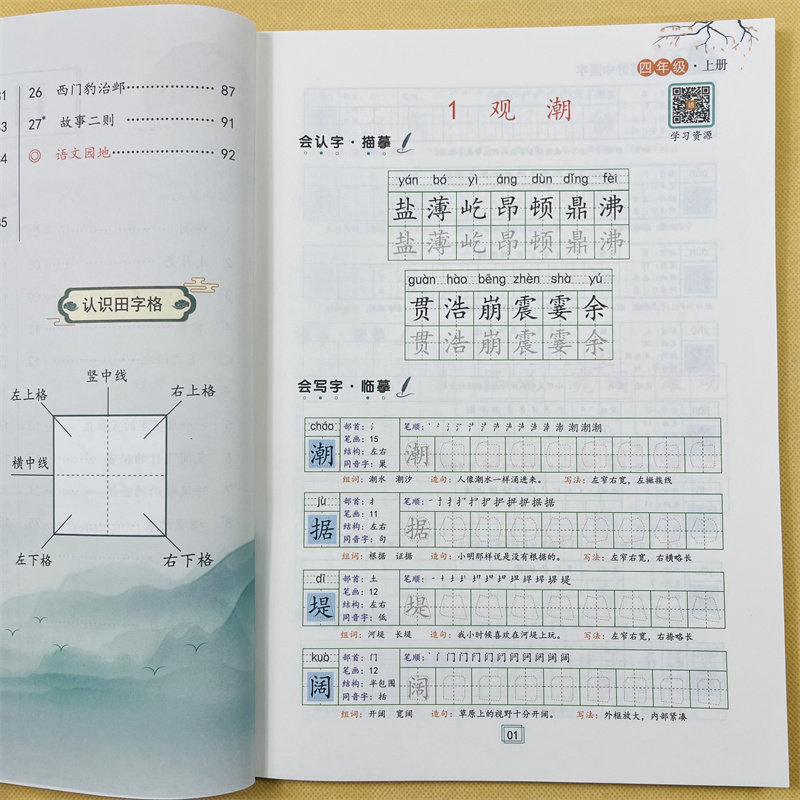 81
26 西门豹治邺 87
83
27* 故事二则 91
84
◎ 语文园地 92
85
认识田字格
竖中线
左上格 右上格
横中线
左下格 右下格
四年级·上册
学习资源
1 观 潮
会认字·描摹
yán bó yì áng dùn dǐng fèi
盐薄屹昂顿鼎沸
盐薄屹昂顿鼎沸
guàn hào bēng zhèn shà yú
贯浩崩震霎余
贯浩崩震霎余
会写字·临摹
cháo 部首：氵 笔顺：
潮 笔画：15 潮
结构：左右
同音字：巢
组词：潮水 潮汐 造句：人像潮水一样涌进来。 写法：左窄右宽，左撇挨线
jù 部首：扌 笔顺：
据 笔画：11 据
结构：左右
同音字：句
组词：根据 证据 造句：小明那样说是没有根据的。 写法：左窄右宽，右横略长
dī 部首：土 笔顺：
堤 笔画：12 堤
结构：左右
同音字：低
组词：河堤 长堤 造句：我小时候喜欢在河堤上玩。 写法：左窄右宽，右捺略长
kuò 部首：门 笔顺：
阔 笔画：12 阔
结构：半包围
同音字：括
组词：开阔 宽阔 造句：草原上的视野十分开阔。 写法：外框放大，内部紧凑
01